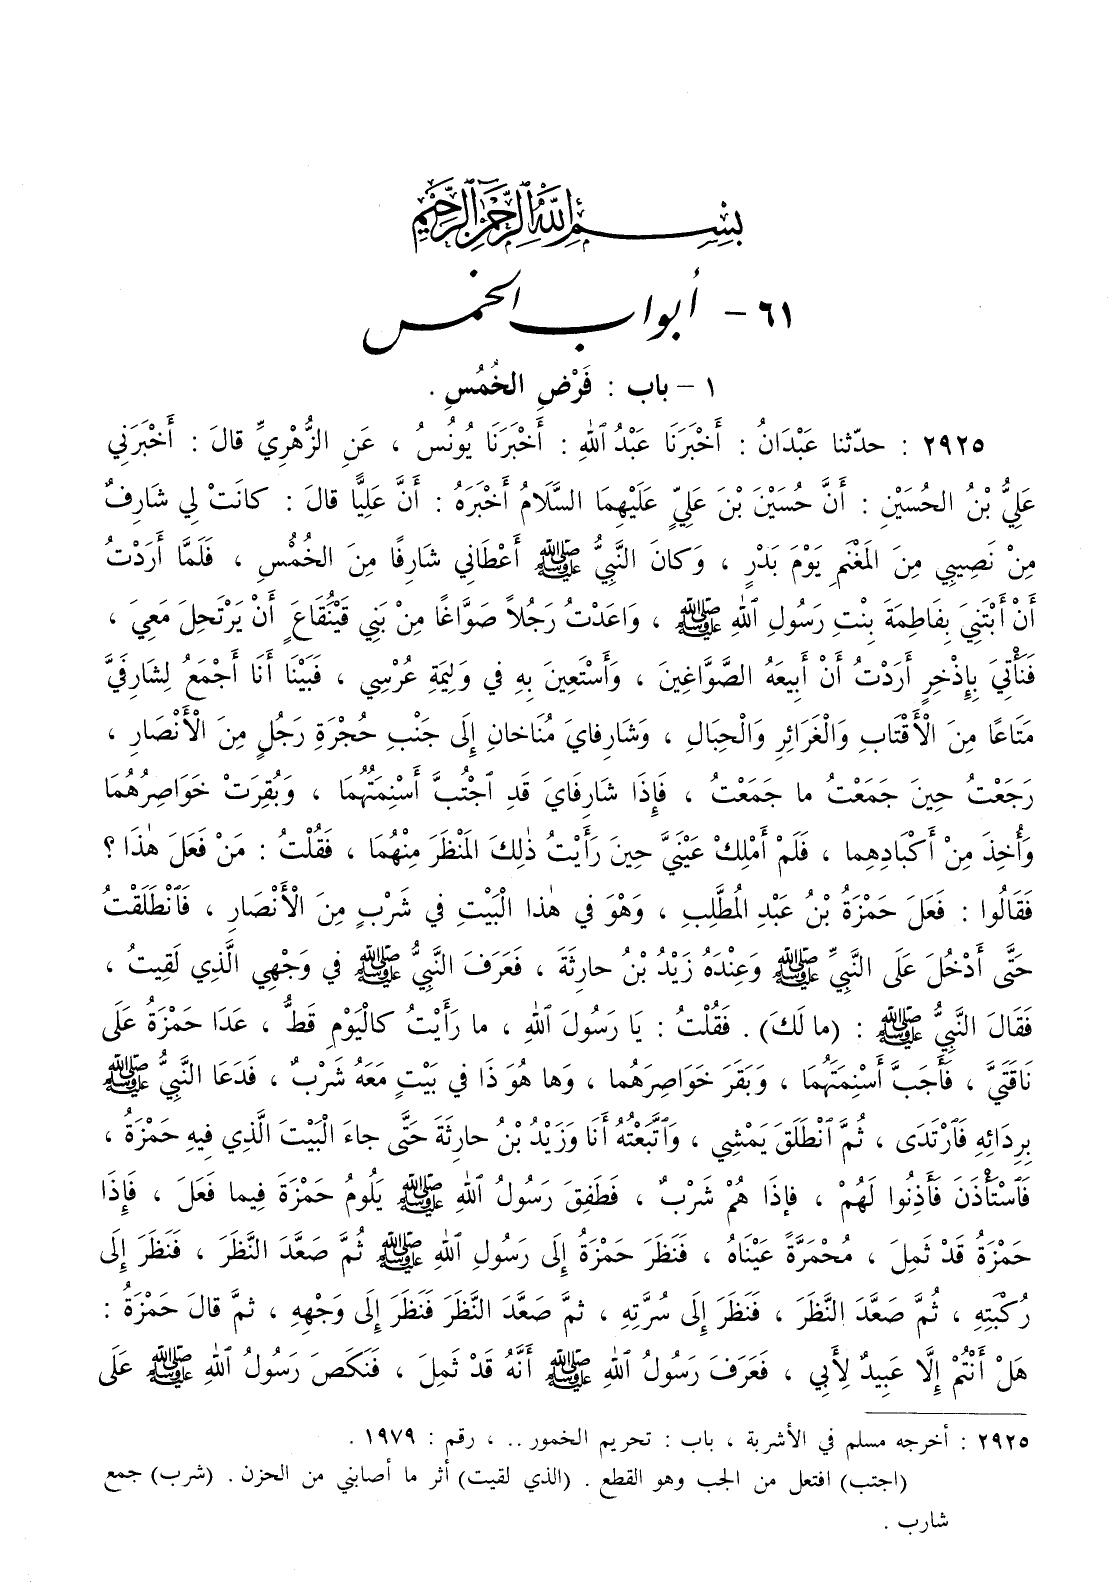 بِسْمِ اللَّهِ الرَّحْمَٰنِ الرَّحِيمِ
٦١ - أبواب الخمس
١ - باب : فَرْضِ الخُمُسِ .
٢٩٢٥ : حدّثنا عَبْدَانُ : أَخْبَرَنَا عَبْدُ ٱللهِ : أَخْبَرَنَا يُونُسُ ، عَنِ الزُّهْرِيِّ قالَ : أَخْبَرَنِي
عَلِيُّ بْنُ الحُسَيْنِ : أَنَّ حُسَيْنَ بْنَ عَلِيٍّ عَلَيْهِمَا السَّلَامُ أَخْبَرَهُ : أَنَّ عَلِيًّا قالَ : كانَتْ لِي شَارِفٌ
مِنْ نَصِيبِي مِنَ المَغْنَمِ يَوْمَ بَدْرٍ ، وَكانَ النَّبِيُّ ﷺ أَعْطَانِي شَارِفًا مِنَ الخُمُسِ ، فَلَمَّا أَرَدْتُ
أَنْ أَبْتَنِيَ بِفَاطِمَةَ بِنْتِ رَسُولِ ٱللهِ ﷺ ، وَاعَدْتُ رَجُلاً صَوَّاغًا مِنْ بَنِي قَيْنُقَاعَ أَنْ يَرْتَحِلَ مَعِيَ ،
فَنَأْتِيَ بِإِذْخِرٍ أَرَدْتُ أَنْ أَبِيعَهُ الصَّوَّاغِينَ ، وَأَسْتَعِينَ بِهِ في وَلِيمَةِ عُرْسِي ، فَبَيْنَا أَنَا أَجْمَعُ لِشَارِفَيَّ
مَتَاعًا مِنَ الْأَقْتَابِ وَالْغَرَائِرِ وَالْحِبَالِ ، وَشَارِفايَ مُنَاخانِ إِلَى جَنْبِ حُجْرَةِ رَجُلٍ مِنَ الْأَنْصَارِ ،
رَجَعْتُ حِينَ جَمَعْتُ ما جَمَعْتُ ، فَإِذَا شَارِفَايَ قَدِ ٱجْتُبَّ أَسْنِمَتُهُمَا ، وَبُقِرَتْ خَوَاصِرُهُمَا
وَأُخِذَ مِنْ أَكْبَادِهِما ، فَلَمْ أَمْلِكْ عَيْنَيَّ حِينَ رَأَيْتُ ذٰلِكَ المَنْظَرَ مِنْهُمَا ، فَقُلْتُ : مَنْ فَعَلَ هٰذَا ؟
فَقَالُوا : فَعَلَ حَمْزَةُ بْنُ عَبْدِ المُطَّلِبِ ، وَهْوَ في هٰذا الْبَيْتِ في شَرْبٍ مِنَ الْأَنْصَارِ ، فَٱنْطَلَقْتُ
حَتَّى أَدْخُلَ عَلَى النَّبِيِّ ﷺ وَعِنْدَهُ زَيْدُ بْنُ حارِثَةَ ، فَعَرَفَ النَّبِيُّ ﷺ في وَجْهِي الَّذِي لَقِيتُ ،
فَقَالَ النَّبِيُّ ﷺ : (ما لَكَ) . فَقُلْتُ : يَا رَسُولَ ٱللهِ ، ما رَأَيْتُ كالْيَوْمِ قَطُّ ، عَدَا حَمْزَةُ عَلَى
نَاقَتَيَّ ، فَأَجَبَّ أَسْنِمَتَهُمَا ، وَبَقَرَ خَوَاصِرَهُما ، وَها هُوَ ذَا في بَيْتٍ مَعَهُ شَرْبٌ ، فَدَعَا النَّبِيُّ ﷺ
بِرِدَائِهِ فَٱرْتَدَى ، ثُمَّ ٱنْطَلَقَ يَمْشِي ، وَٱتَّبَعْتُهُ أَنَا وَزَيْدُ بْنُ حارِثَةَ حَتَّى جاءَ الْبَيْتَ الَّذِي فِيهِ حَمْزَةُ ،
فَٱسْتَأْذَنَ فَأَذِنُوا لَهُمْ ، فإذَا هُمْ شَرْبٌ ، فَطَفِقَ رَسُولُ ٱللهِ ﷺ يَلُومُ حَمْزَةَ فِيما فَعَلَ ، فَإِذَا
حَمْزَةُ قَدْ ثَمِلَ ، مُحْمَرَّةً عَيْنَاهُ ، فَنَظَرَ حَمْزَةُ إِلَى رَسُولِ ٱللهِ ﷺ ثُمَّ صَعَّدَ النَّظَرَ ، فَنَظَرَ إِلَى
رُكْبَتِهِ ، ثُمَّ صَعَّدَ النَّظَرَ ، فَنَظَرَ إِلَى سُرَّتِهِ ، ثمَّ صَعَّدَ النَّظَرَ فَنَظَرَ إِلَى وَجْهِهِ ، ثمَّ قالَ حَمْزَةُ :
هَلْ أَنْتُمْ إِلَّا عَبِيدٌ لِأَبِي ، فَعَرَفَ رَسُولُ ٱللهِ ﷺ أَنَّهُ قَدْ ثَمِلَ ، فَنَكَصَ رَسُولُ ٱللهِ ﷺ عَلَى
٢٩٢٥ : أخرجه مسلم في الأشربة ، باب : تحريم الخمور .. ، رقم : ١٩٧٩ .
(اجتب) افتعل من الجب وهو القطع . (الذي لقيت) أثر ما أصابني من الحزن . (شرب) جمع
شارب .